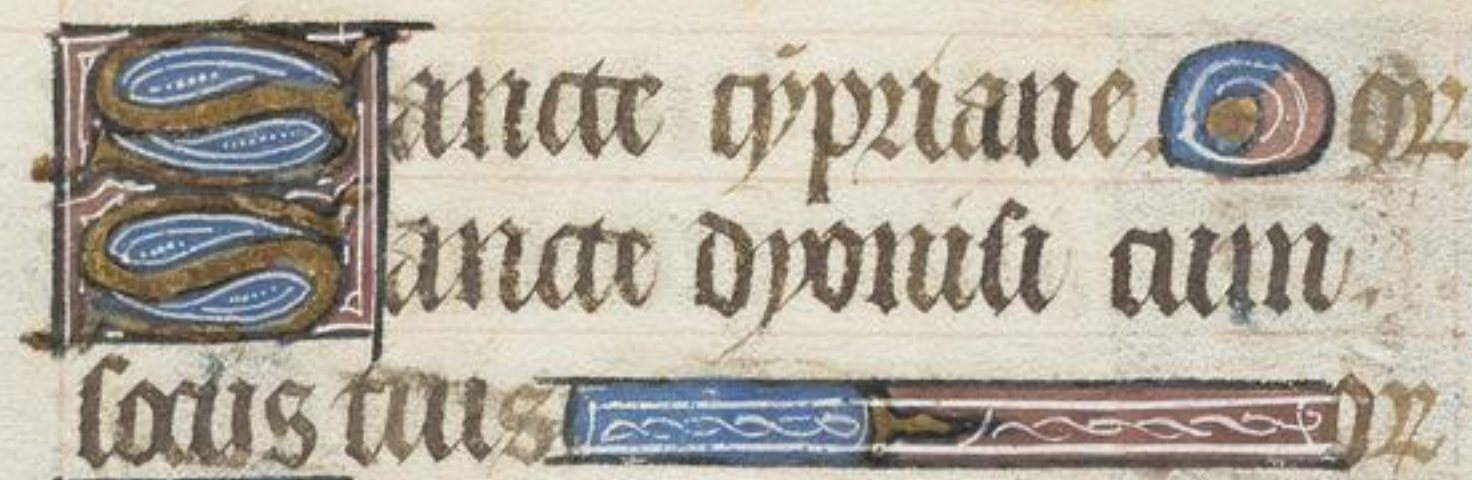 Sancte cypriane. or
Sancte dyonisi cum
sociis tuis or